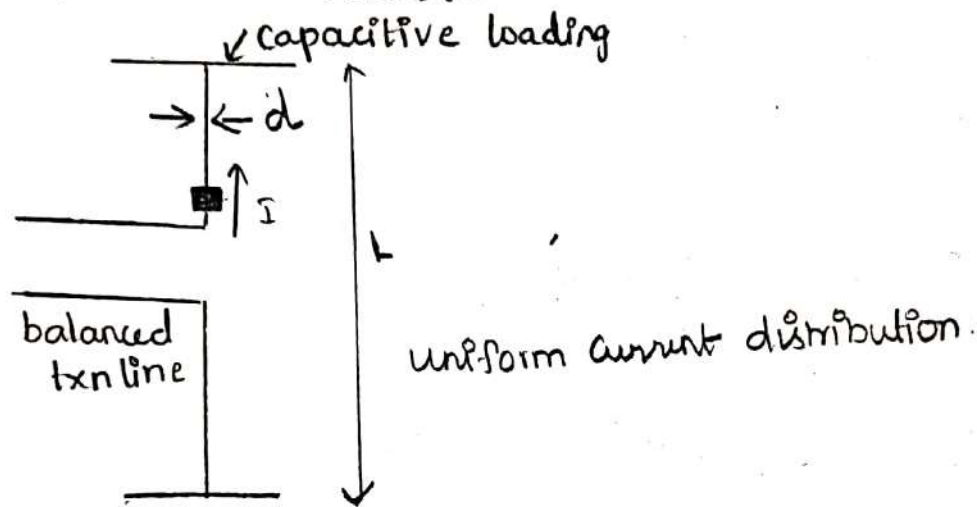 capacitive loading
d
I
L
balanced
txn line
uniform current distribution.